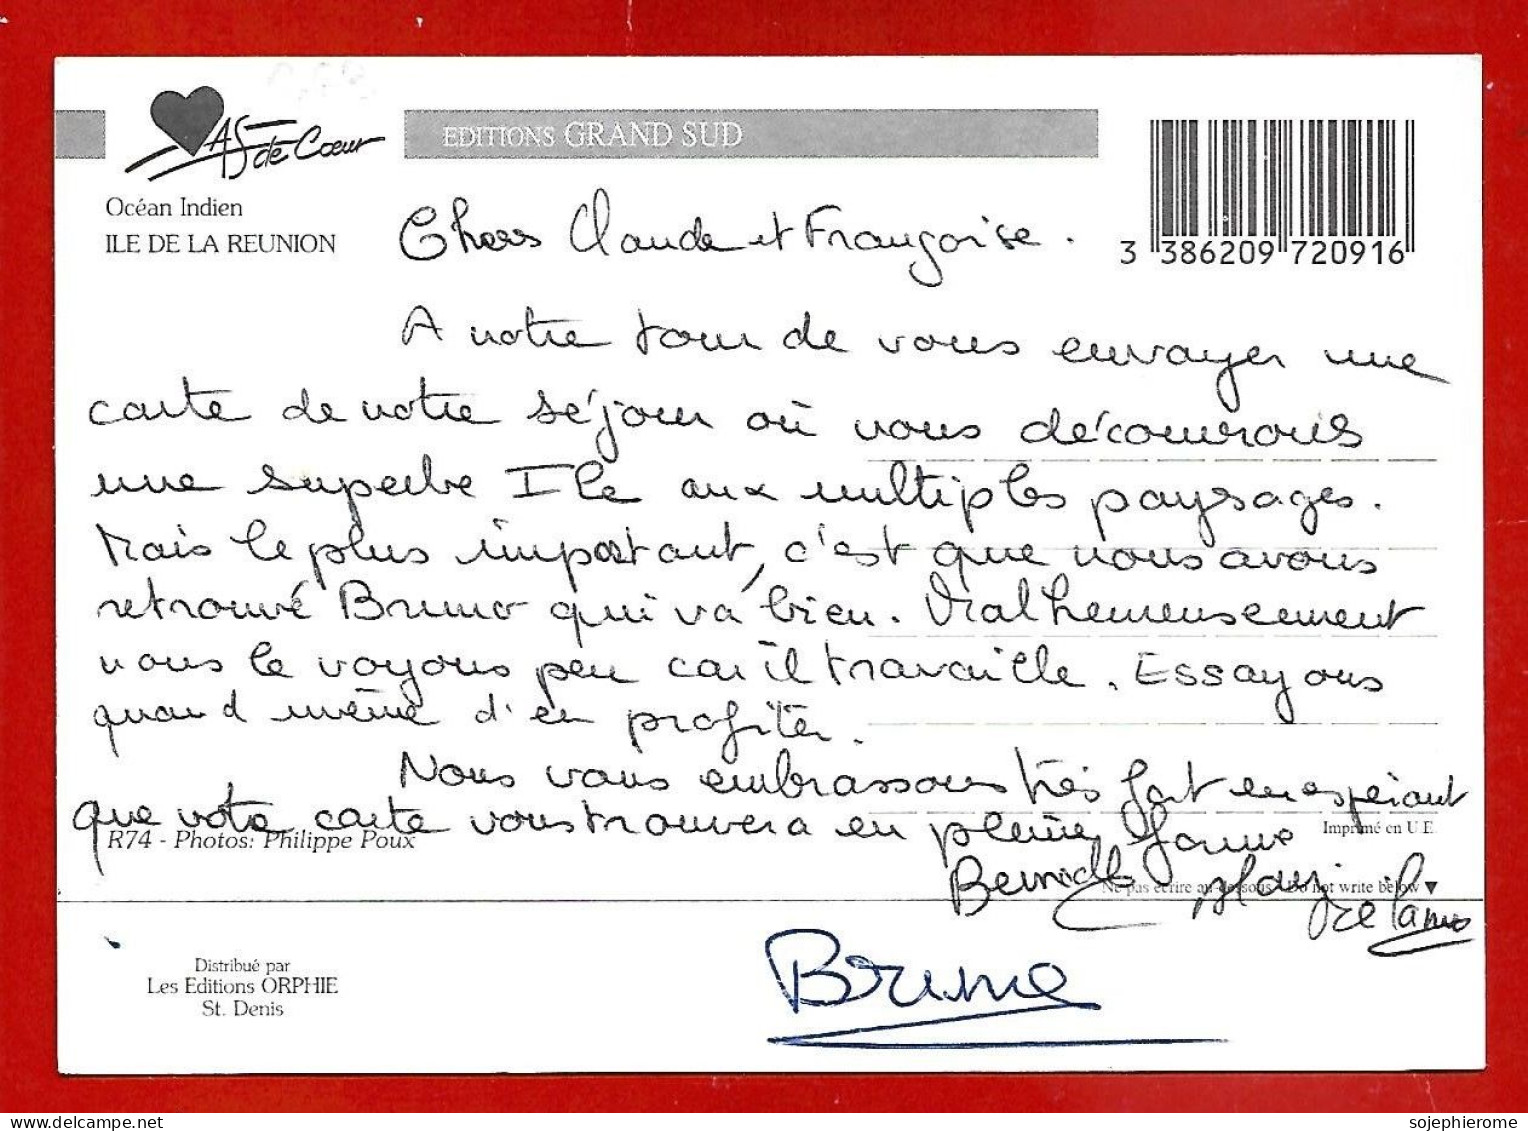 AS de Cœur
EDITIONS GRAND SUD
Océan Indien
ILE DE LA REUNION
3 386209 720916
Chers Claude et Françoise.
A notre tour de vous envoyer une
carte de notre séjour où nous découvrons
une superbe Ile aux multiples paysages.
Mais le plus important, c'est que nous avons
retrouvé Bruno qui va bien. Malheureusement
nous le voyons peu car il travaille. Essayons
quand même d'en profiter.
Nous vous embrassons très fort en espérant
que notre carte vous trouvera en pleine forme
R74 - Photos: Philippe Poux
Imprimé en U.E.
Ne pas écrire au-dessous - Do not write below ▼
Distribué par
Les Editions ORPHIE
St. Denis
Bruno
delcampe.net
sojephierome